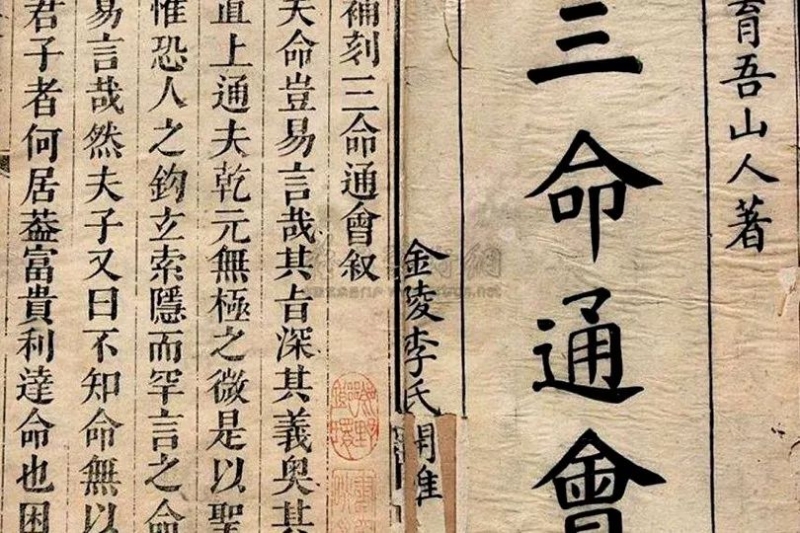 育吾山人著
三命通會
金陵李氏
補刻三命通會叙
天命豈易言哉其旨深其義奥其
直上通夫乾元無極之微是以聖
惟恐人之鈎玄索隱而罕言之命
易言哉然夫子又曰不知命無以
君子者何居葢富貴利達命也困